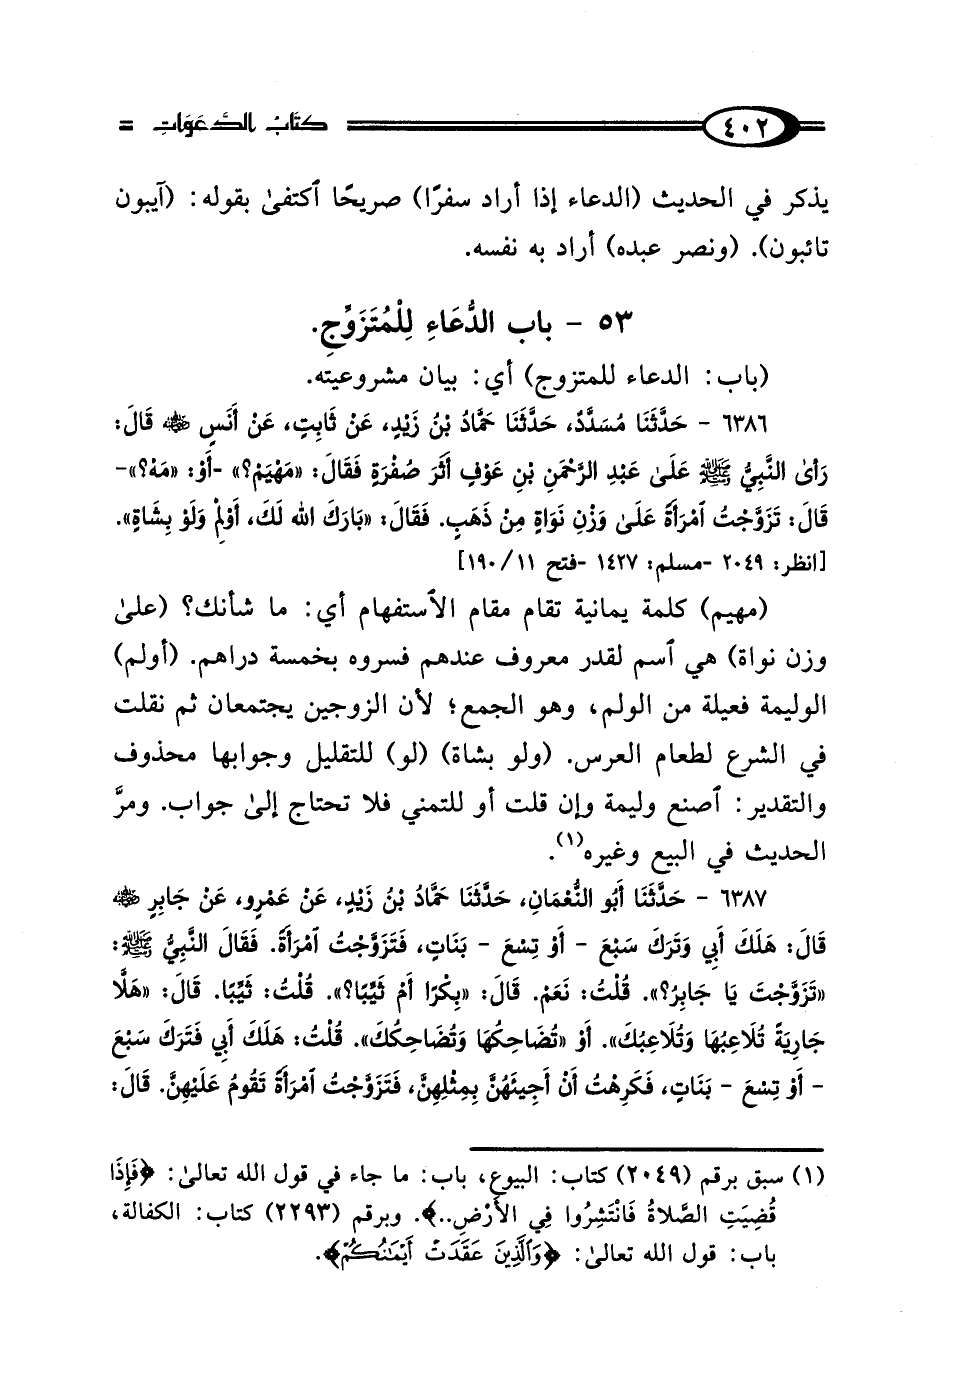 ٤٠٢ كتاب الدعوات =
يذكر في الحديث (الدعاء إذا أراد سفرًا) صريحًا ٱكتفىٰ بقوله: (آيبون
تائبون). (ونصر عبده) أراد به نفسه.
٥٣ - باب الدُّعَاءِ لِلْمُتَزَوِّجِ.
(باب: الدعاء للمتزوج) أي: بيان مشروعيته.
٦٣٨٦ - حَدَّثَنَا مُسَدَّدٌ، حَدَّثَنَا حَمَّادُ بْنُ زَيْدٍ، عَنْ ثَابِتٍ، عَنْ أَنَسٍ ﵁ قَالَ:
رَأىٰ النَّبِيُّ ﷺ عَلَىٰ عَبْدِ الرَّحْمَنِ بْنِ عَوْفٍ أَثَرَ صُفْرَةٍ فَقَالَ: «مَهْيَمْ؟» -أَوْ: «مَهْ؟»-
قَالَ: تَزَوَّجْتُ ٱمْرَأَةً عَلَىٰ وَزْنِ نَوَاةٍ مِنْ ذَهَبٍ. فَقَالَ: «بَارَكَ الله لَكَ، أَوْلِمْ وَلَوْ بِشَاةٍ».
[انظر: ٢٠٤٩ -مسلم: ١٤٢٧ -فتح ١١/ ١٩٠]
(مهيم) كلمة يمانية تقام مقام الٱستفهام أي: ما شأنك؟ (علىٰ
وزن نواة) هي ٱسم لقدر معروف عندهم فسروه بخمسة دراهم. (أولم)
الوليمة فعيلة من الولم، وهو الجمع؛ لأن الزوجين يجتمعان ثم نقلت
في الشرع لطعام العرس. (ولو بشاة) (لو) للتقليل وجوابها محذوف
والتقدير: ٱصنع وليمة وإن قلت أو للتمني فلا تحتاج إلىٰ جواب. ومرَّ
الحديث في البيع وغيره(١).
٦٣٨٧ - حَدَّثَنَا أَبُو النُّعْمَانِ، حَدَّثَنَا حَمَّادُ بْنُ زَيْدٍ، عَنْ عَمْرٍو، عَنْ جَابِرٍ ﵁
قَالَ: هَلَكَ أَبِي وَتَرَكَ سَبْعَ - أَوْ تِسْعَ - بَنَاتٍ، فَتَزَوَّجْتُ ٱمْرَأَةً. فَقَالَ النَّبِيُّ ﷺ:
«تَزَوَّجْتَ يَا جَابِرُ؟». قُلْتُ: نَعَمْ. قَالَ: «بِكْرًا أَمْ ثَيِّبًا؟». قُلْتُ: ثَيِّبًا. قَالَ: «هَلَّا
جَارِيَةً تُلَاعِبُهَا وَتُلَاعِبُكَ». أَوْ «تُضَاحِكُهَا وَتُضَاحِكُكَ». قُلْتُ: هَلَكَ أَبِي فَتَرَكَ سَبْعَ
- أَوْ تِسْعَ - بَنَاتٍ، فَكَرِهْتُ أَنْ أَجِيئَهُنَّ بِمِثْلِهِنَّ، فَتَزَوَّجْتُ ٱمْرَأَةً تَقُومُ عَلَيْهِنَّ. قَالَ:
(١) سبق برقم (٢٠٤٩) كتاب: البيوع، باب: ما جاء في قول الله تعالىٰ: ﴿فَإِذَا
قُضِيَتِ الصَّلاةُ فَانْتَشِرُوا فِي الأَرْضِ..﴾. وبرقم (٢٢٩٣) كتاب: الكفالة،
باب: قول الله تعالىٰ: ﴿وَٱلَّذِينَ عَقَدَتْ أَيْمَٰنُكُمْ﴾.